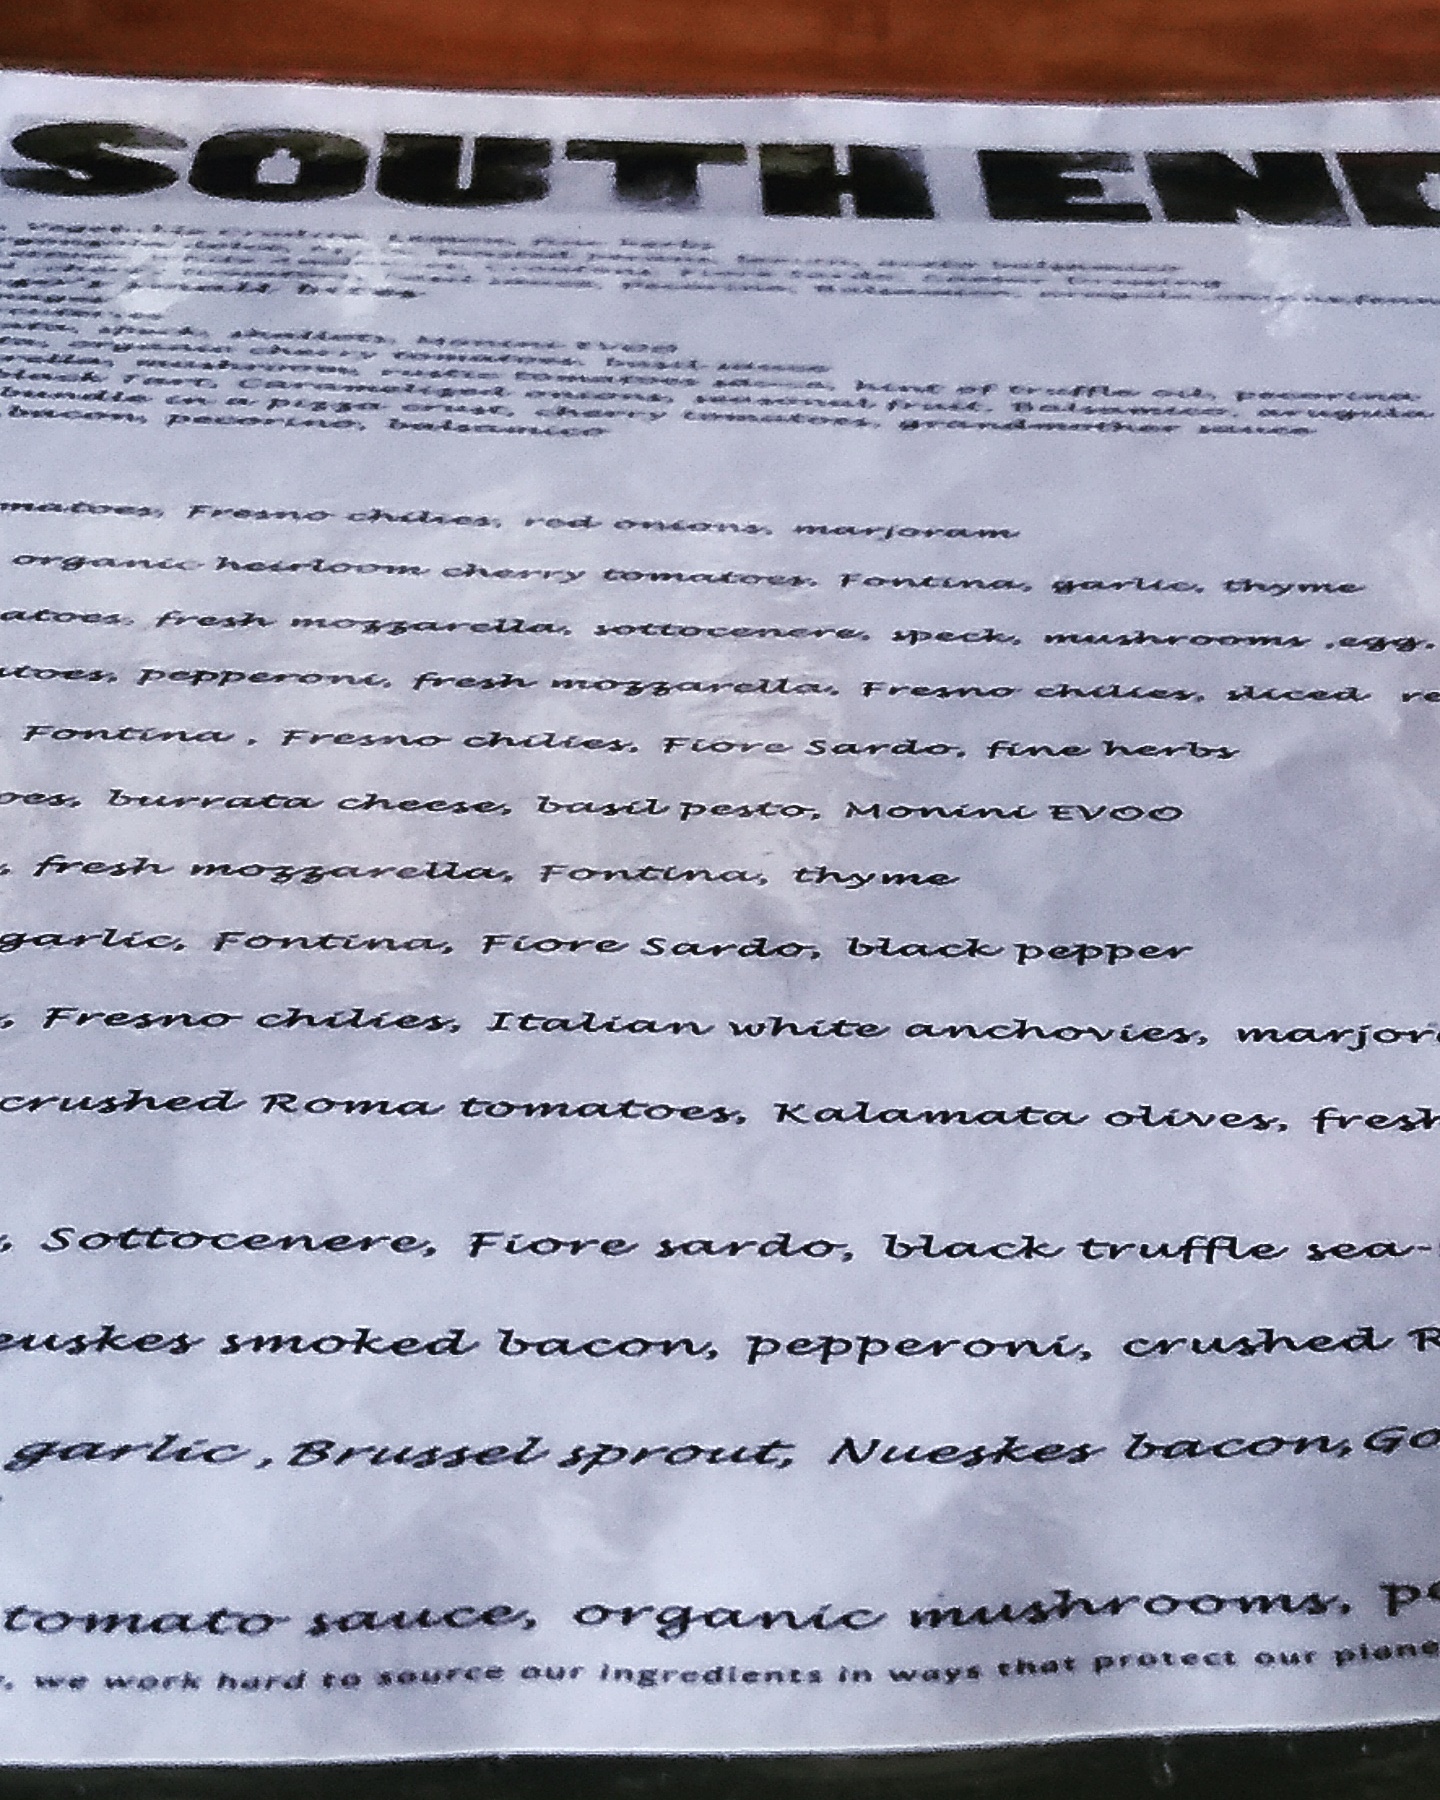 SOUTH END
fine herbs
small bites
shallots, Monini EVOO
organic cherry tomatoes, basil sauce
mushroom, rustic tomatoes sauce, hint of truffle oil, pecorino
Tart, Caramelized onions, seasonal fruit, Balsamico, arugula
bundle in a pizza crust, cherry tomatoes, grandmother sauce
bacon, pecorino, balsamico
matoes, Fresno chilies, red onions, marjoram
organic heirloom cherry tomatoes, Fontina, garlic, thyme
atoes, fresh mozzarella, sottocenere, speck, mushrooms ,egg,
toes, pepperoni, fresh mozzarella, Fresno chilies, sliced re
Fontina , Fresno chilies, Fiore Sardo, fine herbs
oes, burrata cheese, basil pesto, Monini EVOO
, fresh mozzarella, Fontina, thyme
garlic, Fontina, Fiore Sardo, black pepper
, Fresno chilies, Italian white anchovies, marjor
crushed Roma tomatoes, Kalamata olives, fresh
, Sottocenere, Fiore sardo, black truffle sea-
euskes smoked bacon, pepperoni, crushed R
garlic ,Brussel sprout, Nueskes bacon,Go
tomato sauce, organic mushrooms, pe
, we work hard to source our ingredients in ways that protect our plane